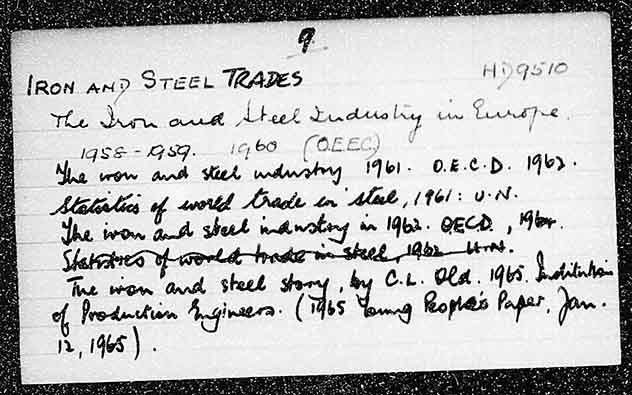 9
IRON AND STEEL TRADES HD9510
The Iron and Steel Industry in Europe.
1958-1959. 1960 (O.E.E.C.)
The iron and steel industry 1961. O.E.C.D. 1962.
Statistics of world trade in steel, 1961: U.N.
The iron and steel industry in 1962. OECD, 1964.
Statistics of world trade in steel, 1962 U.N.
The iron and steel story, by C.L. Old. 1965. Institution
of Production Engineers. (1965 Young People's Paper, Jan.
12, 1965).